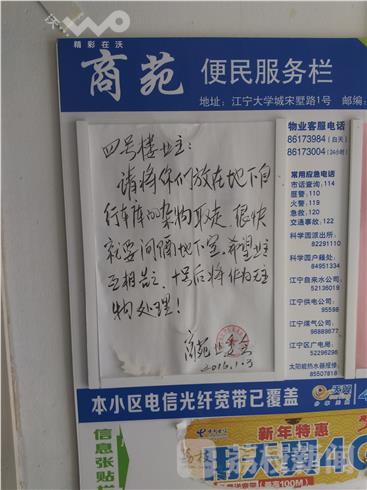 沃
精彩在沃
商苑 便民服务栏
地址：江宁大学城宋墅路1号 邮编：
四号楼业主：
请将你们放在地下自
行车库的杂物取走，很快
就要间隔地下室，希望业主
互相告之，十号后将作为无主
物处理！
商苑业委会
2016.1.3
物业客服电话
86173984（白天）
86173004（24小时）
常用应急电话
市话查询：114
匪警：110
火警：119
急救：120
交通事故：122
科学园派出所：
82291110
科学园户籍处：
84951334
江宁自来水公司：
52136019
江宁供电公司：
95598
江宁煤气公司：
96889677
江宁区广电局：
52296298
太阳能热水器报修：
85507818
本小区电信光纤宽带已覆盖
天翼
信息张贴栏
中国电信
新年特惠
4G
（最高100M）